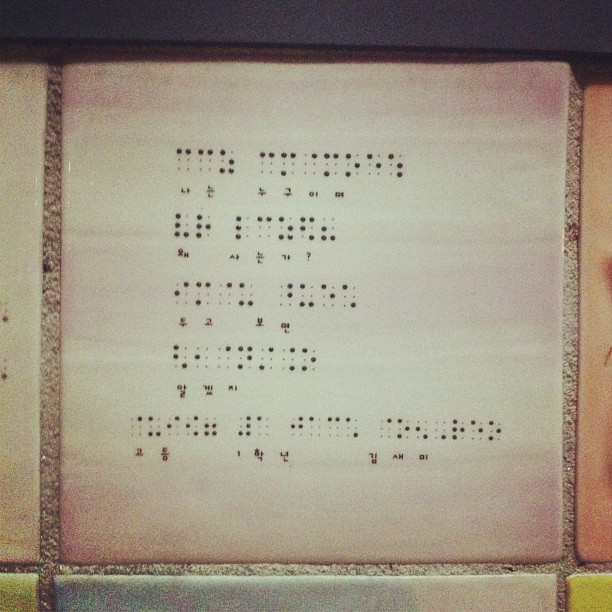 나는 누구이며
왜 사는가?
두고 보면
알겠지
고등 1학년 김새미